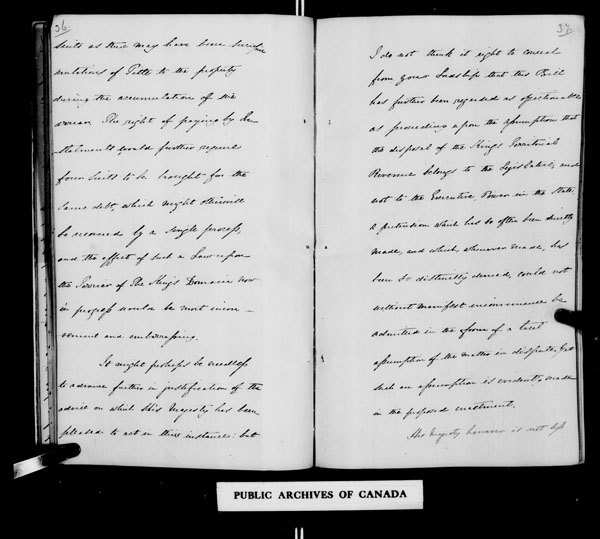 36
suits as there may have been
mutations of Title to the property
during the accumulation of the
arrear. The right of paying by In-
stalments would further require
four suits to be brought for the
same debt, which might otherwise
be recovered by a single process,
and the effect of such a Law upon
the Terrier of The King's Domain now
in progress would be most incon-
venient and embarrassing.
It might perhaps be needless
to advance further in justification of the
advice on which His Majesty has been
pleased to act in these instances: but
37
I do not think it right to conceal
from your Lordship that this Bill
has further been regarded as objectionable
as proceeding upon the assumption that
the disposal of the King's Territorial
Revenue belongs to the Legislative, and
not to the Executive Power in the State
A pretension which has so often been directly
made, and which, whenever made, has
been so distinctly denied, could not
without manifest inconvenience be
admitted in the form of a tacit
assumption of the matter in dispute. Yet
such an assumption is evidently made
in the proposed enactment.
His Majesty however is not less
PUBLIC ARCHIVES OF CANADA